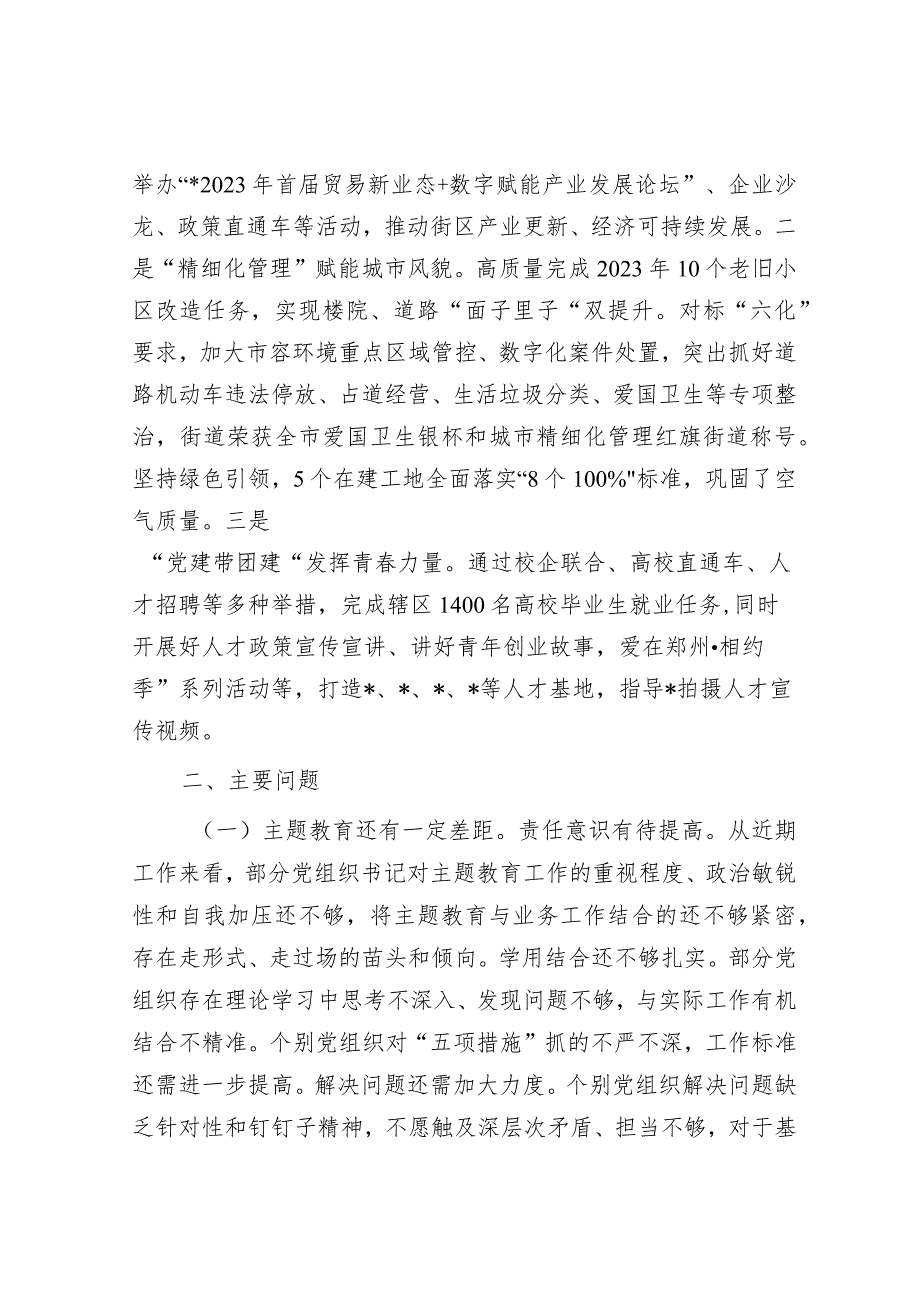 举办“*2023年首届贸易新业态+数字赋能产业发展论坛”、企业沙
龙、政策直通车等活动，推动街区产业更新、经济可持续发展。二
是“精细化管理”赋能城市风貌。高质量完成2023年10个老旧小
区改造任务，实现楼院、道路“面子里子“双提升。对标“六化”
要求，加大市容环境重点区域管控、数字化案件处置，突出抓好道
路机动车违法停放、占道经营、生活垃圾分类、爱国卫生等专项整
治，街道荣获全市爱国卫生银杯和城市精细化管理红旗街道称号。
坚持绿色引领，5个在建工地全面落实“8个100%"标准，巩固了空
气质量。三是
“党建带团建“发挥青春力量。通过校企联合、高校直通车、人
才招聘等多种举措，完成辖区1400名高校毕业生就业任务,同时
开展好人才政策宣传宣讲、讲好青年创业故事，爱在郑州•相约
季”系列活动等，打造*、*、*、*等人才基地，指导*拍摄人才宣
传视频。
二、主要问题
（一）主题教育还有一定差距。责任意识有待提高。从近期
工作来看，部分党组织书记对主题教育工作的重视程度、政治敏锐
性和自我加压还不够，将主题教育与业务工作结合的还不够紧密，
存在走形式、走过场的苗头和倾向。学用结合还不够扎实。部分党
组织存在理论学习中思考不深入、发现问题不够，与实际工作有机
结合不精准。个别党组织对“五项措施”抓的不严不深，工作标准
还需进一步提高。解决问题还需加大力度。个别党组织解决问题缺
乏针对性和钉钉子精神，不愿触及深层次矛盾、担当不够，对于基